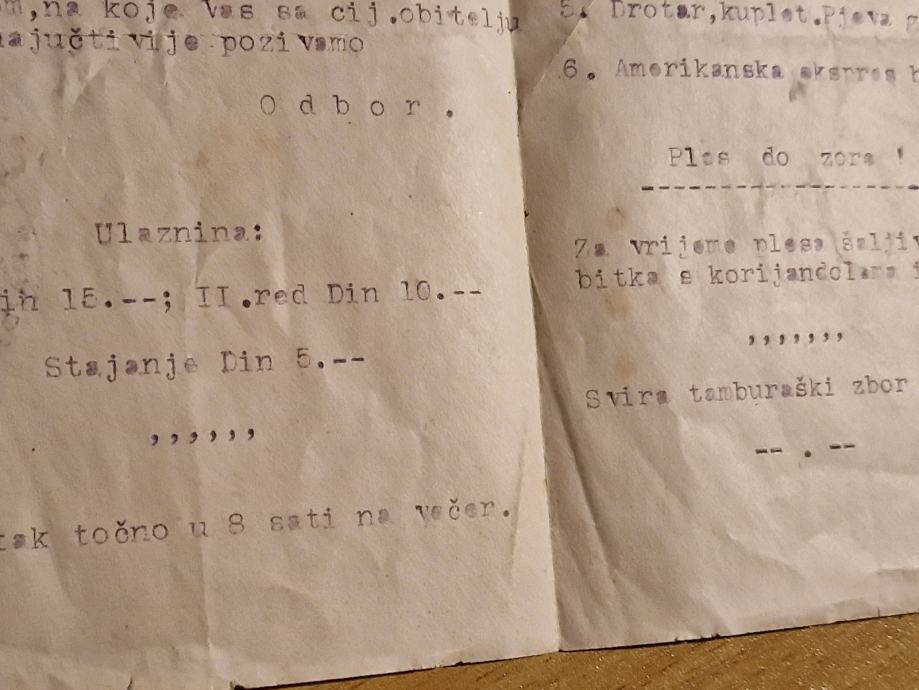 na koje Vas sa cij.obitelju
najučtivije pozivamo
O d b o r .
Ulaznina:
15.--; II.red Din 10.--
Stajanje Din 5.--
,,,,,,
točno u 8 sati na večer.
5. Drotar,kuplet.Pjeva
6. Amerikanska ekspres
Ples do zore !
--------------------
Za vrijeme plesa
bitka s korijandolama
,,,,,,,
Svira tamburaški zbor
-- . --